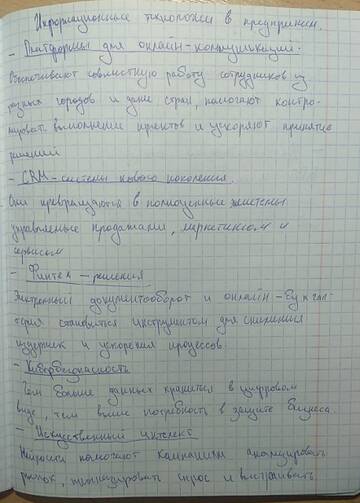 Информационные технологии в предприятии.
- Платформы для онлайн-коммуникации.
Обеспечивают совместную работу сотрудников из
разных городов и даже стран, помогают контро-
лировать выполнение проектов и ускоряют принятие
решений
- CRM-системы нового поколения.
Они превращаются в полноценные системы
управления продажами, маркетингом и
сервисом
- Финтех-решения
Электронный документооборот и онлайн-бухгал-
терия становятся инструментом для снижения
издержек и ускорения процессов
- Кибербезопасность
Чем больше данных хранится в цифровом
виде, тем выше потребность в защите бизнеса
- Искусственный интелект
Нейросети помогают компаниям анализировать
рынок, прогнозировать спрос и выстраивать